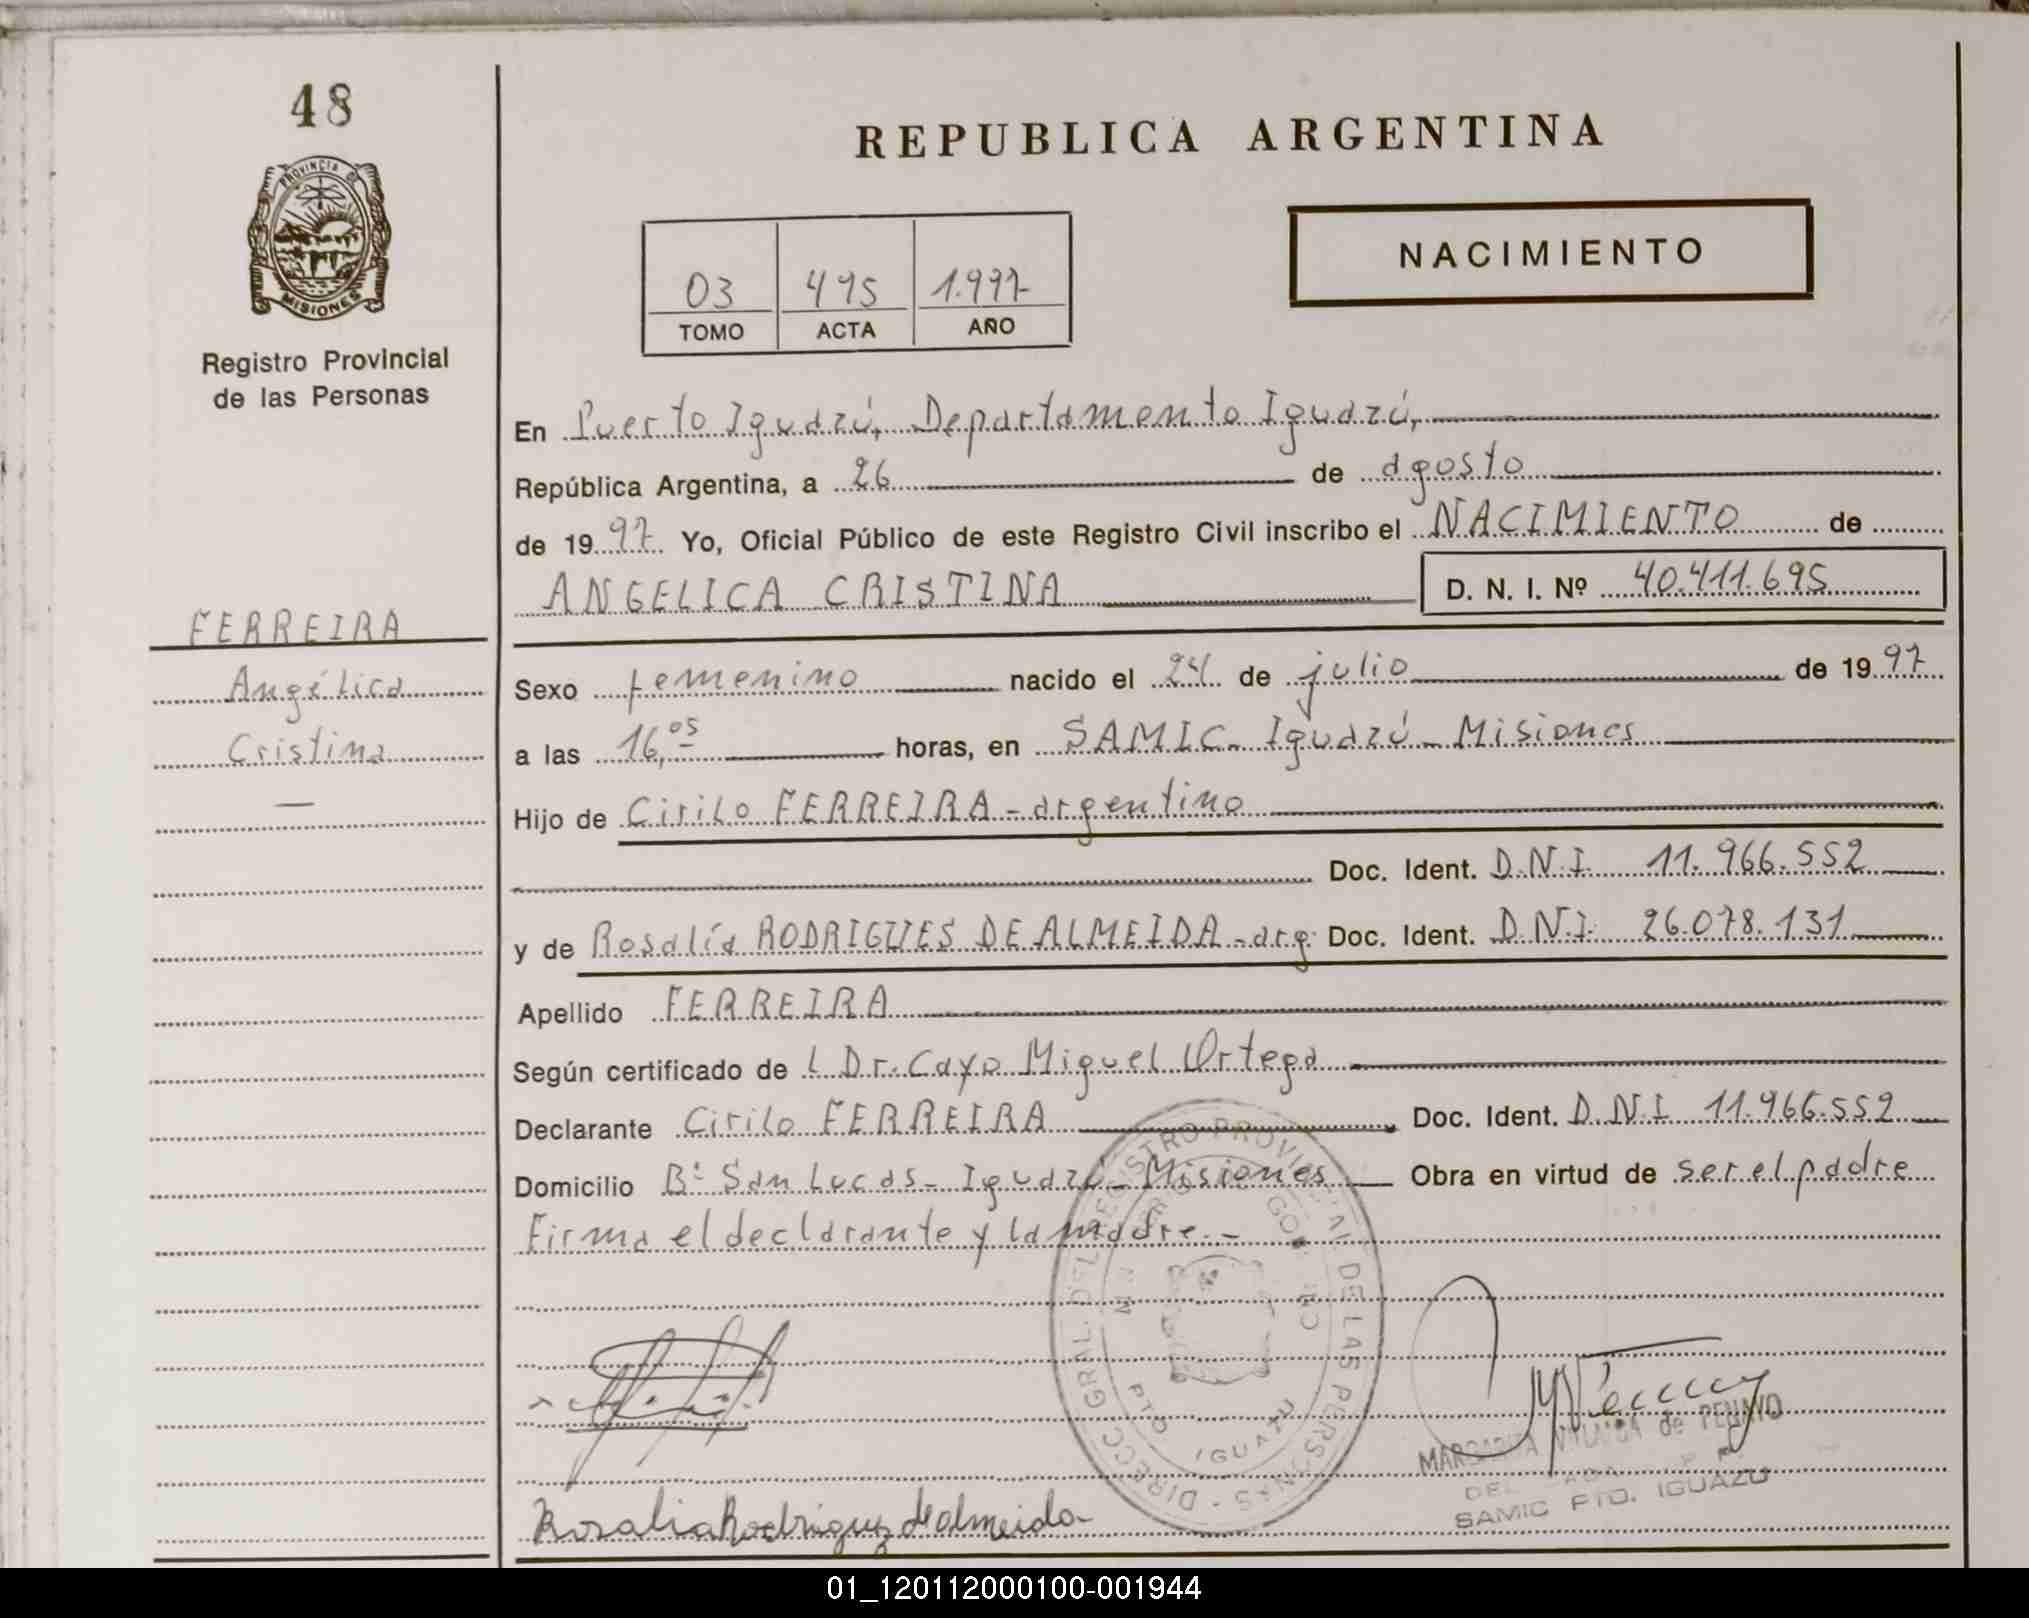 48
REPUBLICA ARGENTINA
PROVINCIA DE
MISIONES
Registro Provincial
de las Personas
03 495 1.997
TOMO ACTA AÑO
NACIMIENTO
En Puerto Iguazú, Departamento Iguazú,
República Argentina, a 26 de agosto
de 1997 Yo, Oficial Público de este Registro Civil inscribo el NACIMIENTO de
ANGELICA CRISTINA D. N. I. Nº 40.411.695
FERREIRA
Angélica
Cristina
—
Sexo femenino nacido el 24 de julio de 1997
a las 16,05 horas, en SAMIC - Iguazú - Misiones
Hijo de Cirilo FERREIRA - argentino
Doc. Ident. D.N.I. 11.966.552
y de Rosalía RODRIGUES DE ALMEIDA - arg. Doc. Ident. D.N.I. 26.078.131
Apellido FERREIRA
Según certificado de L Dr. Cayo Miguel Ortega
Declarante Cirilo FERREIRA Doc. Ident. D.N.I 11.966.552
Domicilio Bº San Lucas - Iguazú - Misiones Obra en virtud de ser el padre
Firma el declarante y la madre. -
DIRECC. GRAL. DEL REGISTRO PROVINCIAL DE LAS PERSONAS
PTO IGUAZU
MARGARITA de
SAMIC PTO. IGUAZU
Rosalia Rodriguez de almeida
01_120112000100-001944